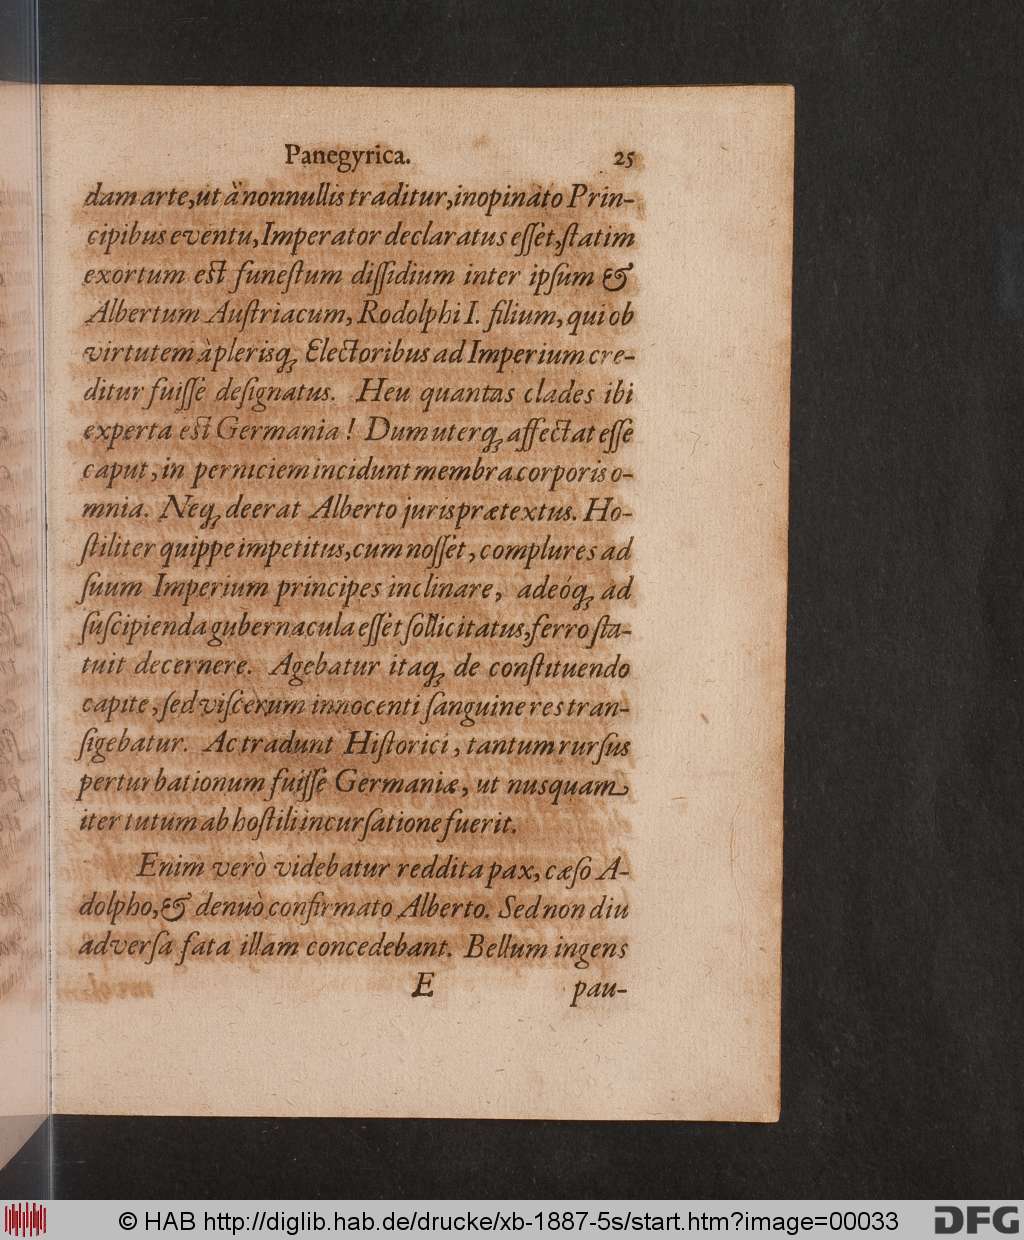 Panegyrica. 25
dam arte, ut à nonnullis traditur, inopinato Prin-
cipibus eventu, Imperator declaratus eſſet, ſtatim
exortum est funeſtum diſſidium inter ipſum &
Albertum Auſtriacum, Rodolphi I. filium, qui ob
virtutem à plerisq́; Electoribus ad Imperium cre-
ditur fuiſſe deſignatus. Heu quantas clades ibi
experta est Germania! Dum uterq; affectat eſſe
caput, in perniciem incidunt membra corporis o-
mnia. Neq; deerat Alberto juris prætextus. Ho-
ſtiliter quippe impetitus, cum noſſet, complures ad
ſuum Imperium principes inclinare, adeóq; ad
ſuſcipienda gubernacula eſſet ſollicitatus, ferro ſta-
tuit decernere. Agebatur itaq; de conſtituendo
capite, ſed viſcerum innocenti ſanguine res tran-
ſigebatur. Ac tradunt Hiſtorici, tantum rurſus
perturbationum fuiſſe Germaniæ, ut nusquam
iter tutum ab hoſtili incurſatione fuerit.
Enim verò videbatur reddita pax, cæſo A-
dolpho, & denuò confirmato Alberto. Sed non diu
adverſa fata illam concedebant. Bellum ingens
E pau-
© HAB http://diglib.hab.de/drucke/xb-1887-5s/start.htm?image=00033
DFG